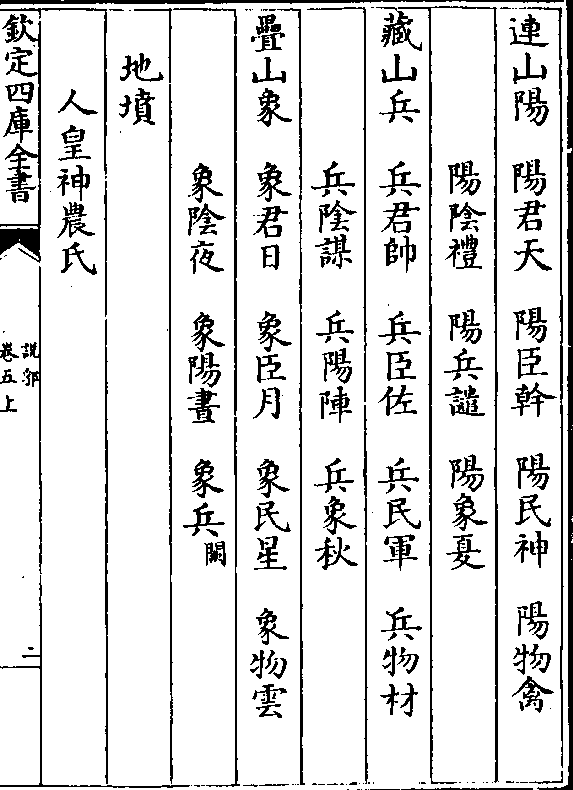 連山陽　陽君天　陽臣幹　陽民神　陽物禽
陽陰禮　陽兵譴　陽象夏
藏山兵　兵君帥　兵臣佐　兵民軍　兵物材
兵陰謀　兵陽陣　兵象秋
疊山象　象君日　象臣月　象民星　象物雲
象陰夜　象陽晝　象兵闕
地墳
人皇神農氏
欽定四庫全書
說郛
卷五上
二